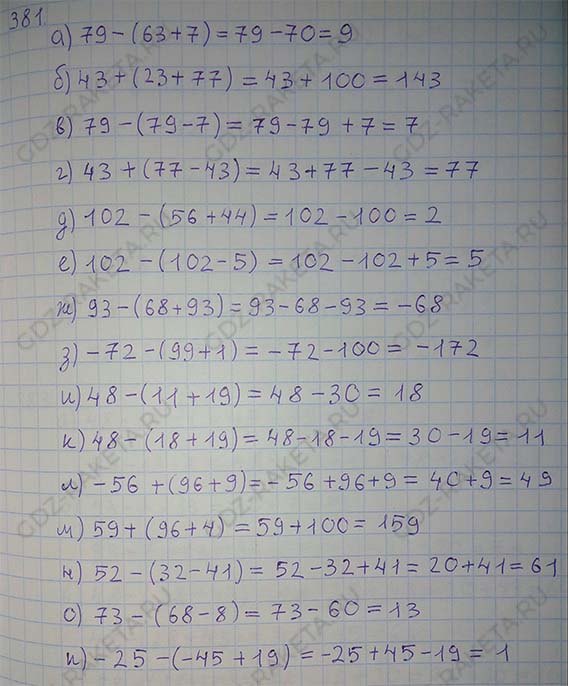 381.
а) 79 - (63 + 7) = 79 - 70 = 9
б) 43 + (23 + 77) = 43 + 100 = 143
в) 79 - (79 - 7) = 79 - 79 + 7 = 7
г) 43 + (77 - 43) = 43 + 77 - 43 = 77
д) 102 - (56 + 44) = 102 - 100 = 2
е) 102 - (102 - 5) = 102 - 102 + 5 = 5
ж) 93 - (68 + 93) = 93 - 68 - 93 = -68
з) -72 - (99 + 1) = -72 - 100 = -172
и) 48 - (11 + 19) = 48 - 30 = 18
к) 48 - (18 + 19) = 48 - 18 - 19 = 30 - 19 = 11
л) -56 + (96 + 9) = -56 + 96 + 9 = 40 + 9 = 49
м) 59 + (96 + 4) = 59 + 100 = 159
н) 52 - (32 - 41) = 52 - 32 + 41 = 20 + 41 = 61
о) 73 - (68 - 8) = 73 - 60 = 13
п) -25 - (-45 + 19) = -25 + 45 - 19 = 1
GDZ-RAKETA.RU